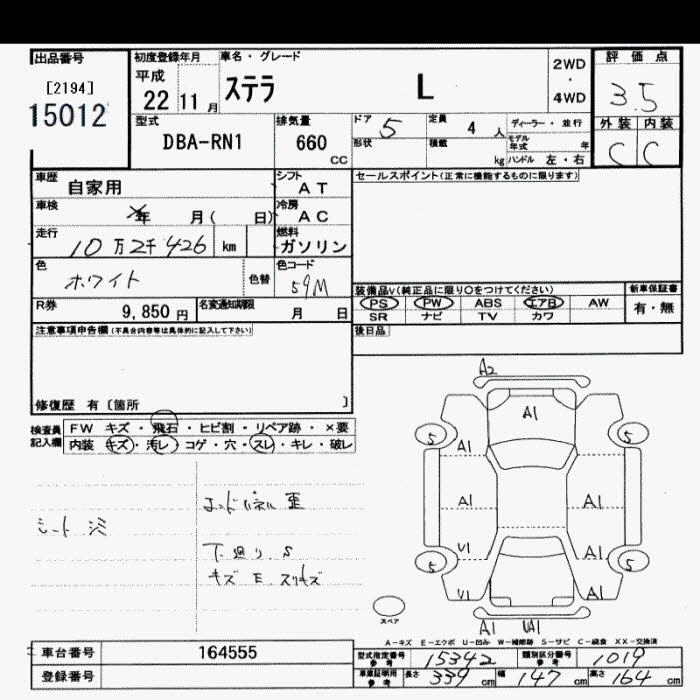 出品番号
[2194]
15012
初度登録年月
平成
22 11 月
車名・グレード
ステラ L
2WD
・
4WD
評価点
3.5
外装 内装
C C
型式
DBA-RN1
排気量
660
CC
ドア 5
定員 4 人
ディーラー・並行
形状
積載 kg
モデル年式 年
ハンドル 左・右
車歴
自家用
シフト
AT
車検
年 月( 日)
冷房
AC
走行
10万2千426 km
燃料
ガソリン
色
ホワイト
色替
色コード
59M
R券
9,850 円
名変通知期限
月 日
セールスポイント(正常に機能するものに限ります)
装備品V(純正品に限り○をつけてください)
PS PW ABS エアB AW
SR ナビ TV カワ
新車保証書
有・無
後日品
注意事項申告欄(不具合内容等は具体的に記入して下さい)
修復歴 有〔箇所 〕
検査員
記入欄
FW キズ・飛石・ヒビ割・リペア跡・×要
内装 キズ・汚レ・コゲ・穴・スレ・キレ・破レ
エンドパネル歪
シート
下廻り S
キズ E スリキズ
A2
A1
5 5
A1
A1 A1
U1 A1
5 5
U1 A1
A1 UA1
スペア
A-キズ E-エクボ U-凹み W-補修跡 S-サビ C-腐食 XX-交換済
車台番号 164555
登録番号
型式指定番号
参考
15342
類別区分番号
参考
1019
車庫証明用
参考
長さ 339 cm 幅 147 cm 高さ 164 cm